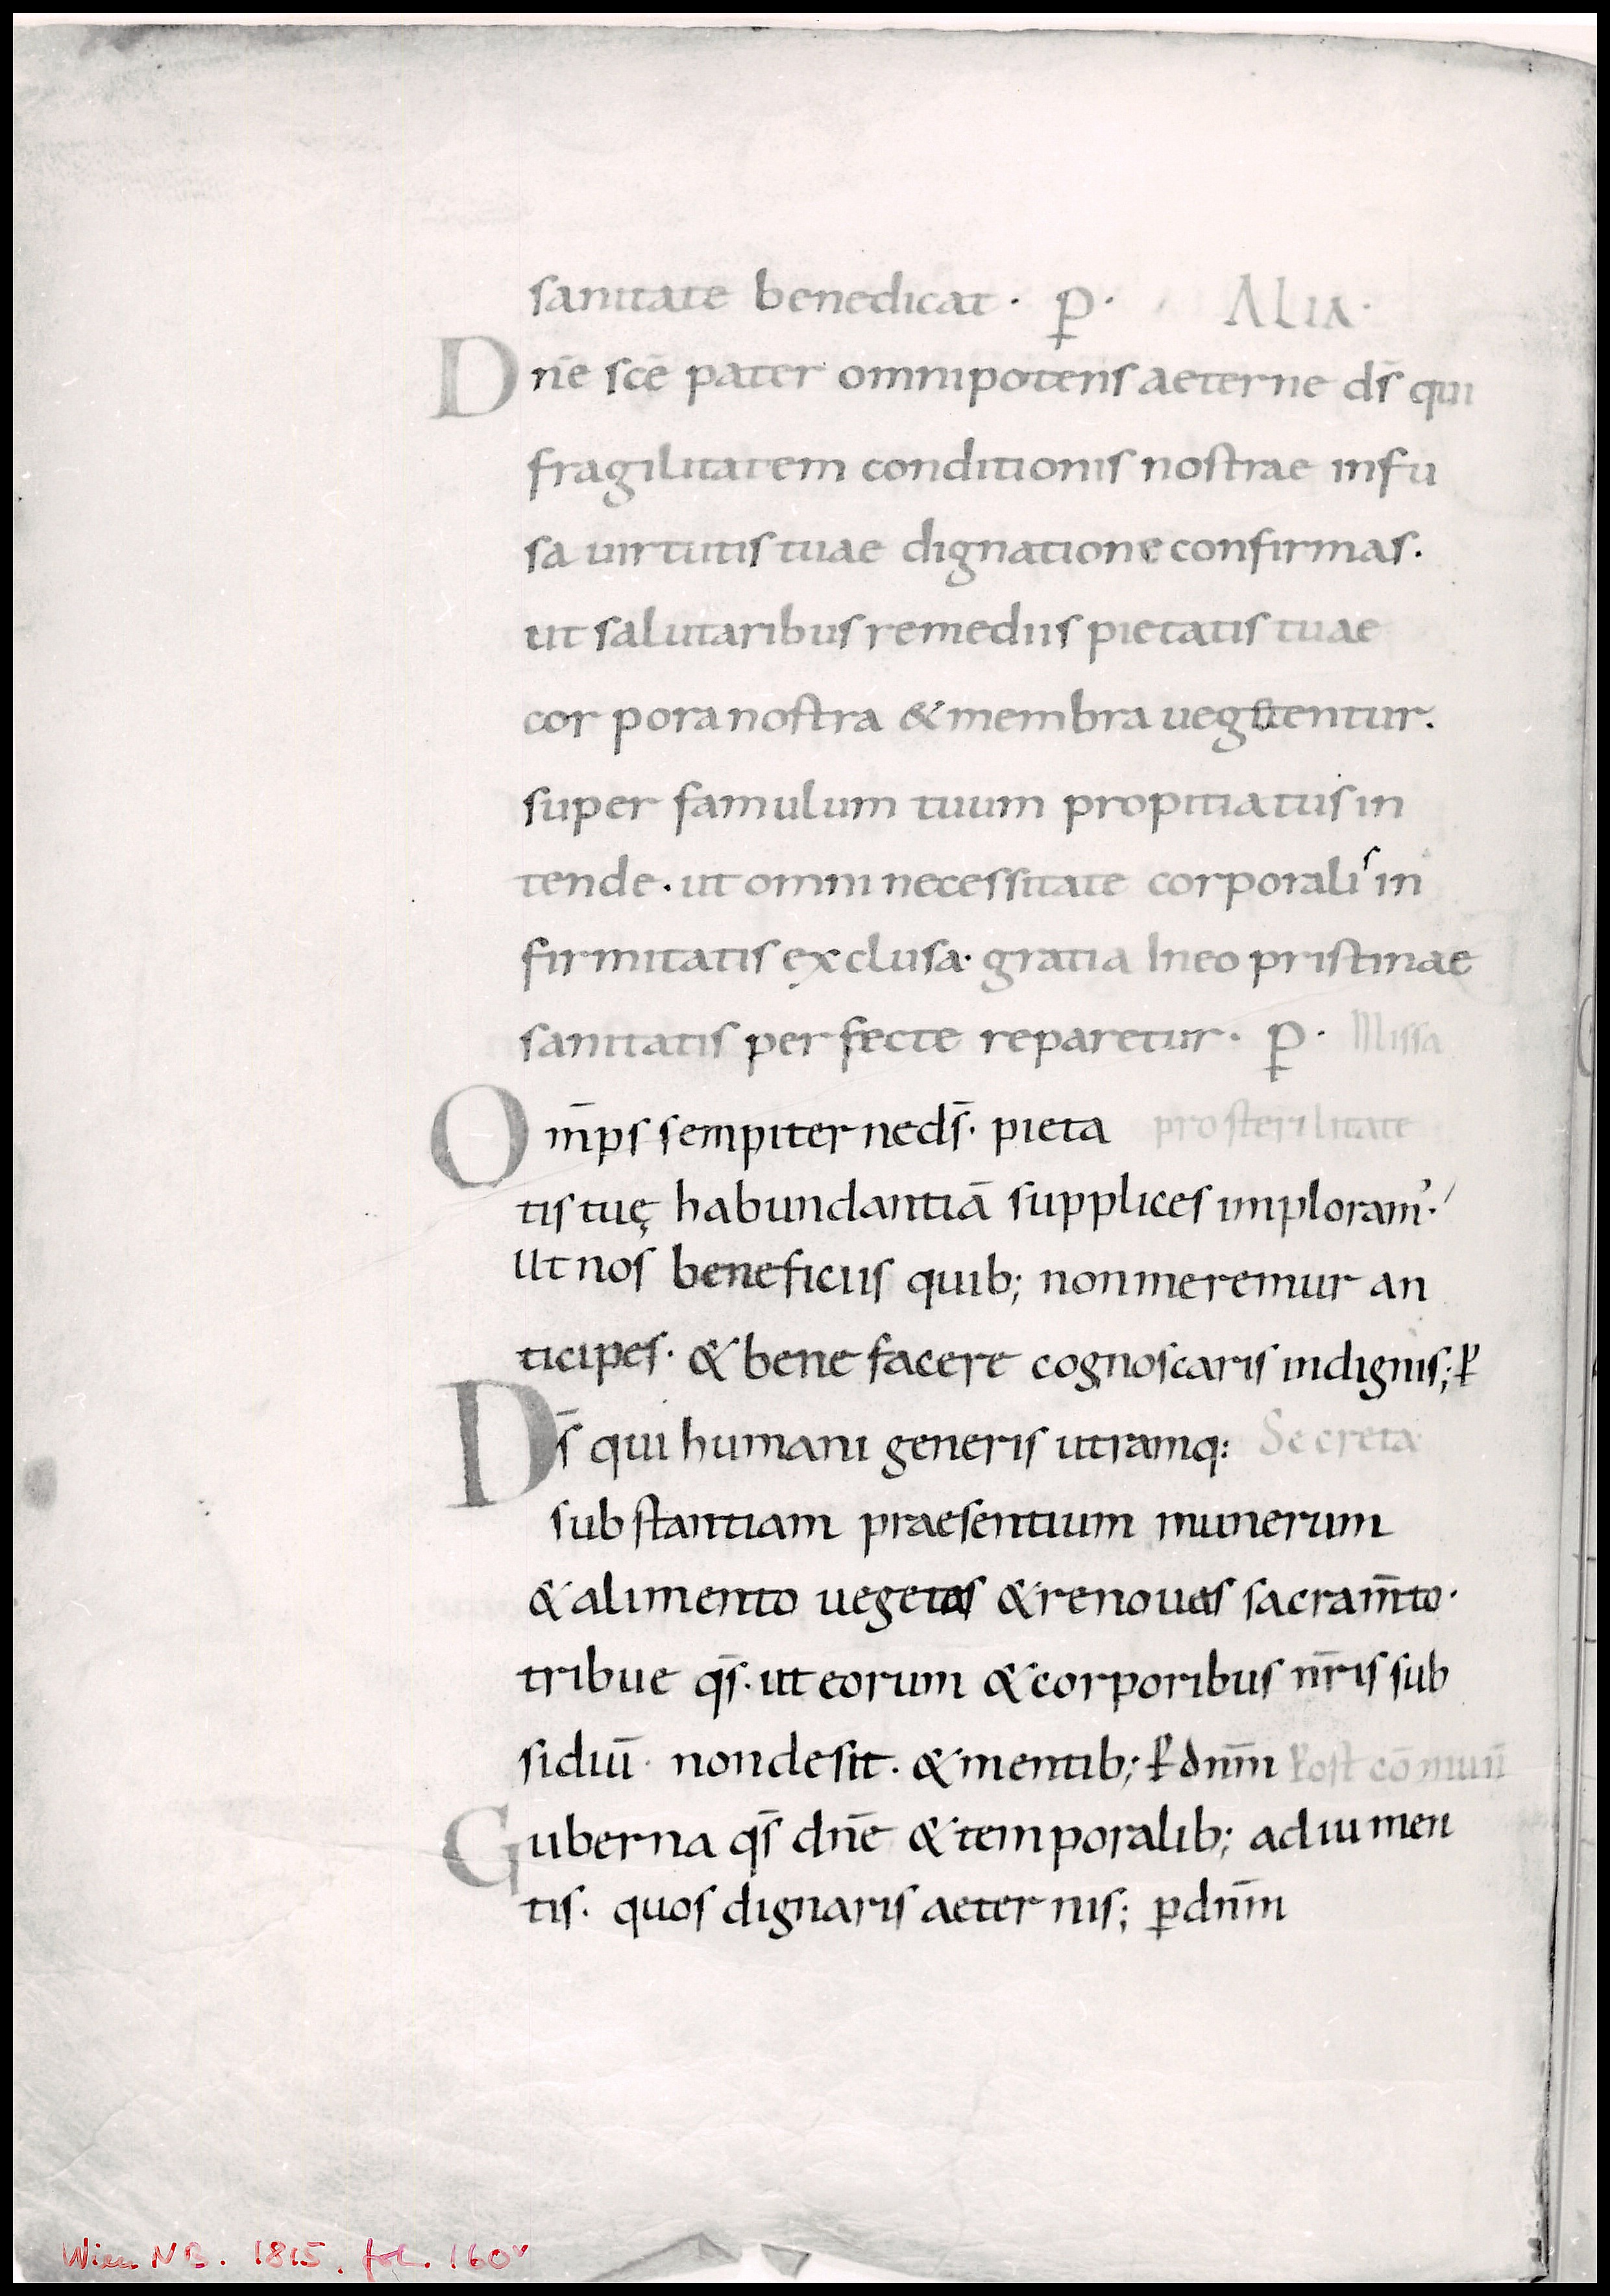 sanitate benedicat · p̲ · ALIA ·
Dn̄e sc̄e pater omnipotens aeterne ds̄ qui
fragilitatem conditionis nostrae infu
sa uirtutis tuae dignatione confirmas.
ut salutaribus remediis pietatis tuae
corpora nostra & membra uegetentur.
super famulum tuum propitiatus in
tende · ut omni necessitate corporaliˢ in
firmitatis exclusa · gratia In eo pristinae
sanitatis perfecte reparetur · p̲ · Missa
Om̄ps sempiterne ds̄ · pieta pro sterilitate
tis tuę habundantiā supplices imploram᾽ ·
Ut nos beneficiis quib; non meremur an
ticipes · & bene facere cognoscaris indignis; P
Ds̄ qui humani generis utramq: Secreta
substantiam praesentium munerum
& alimento uegetas & renouas sacram̄to ·
tribue qs̄ · ut eorum & corporibus nr̄is sub
sidiū · non desit · & mentib; P dnm̄ Post cōmuū
Guberna qs̄ dn̄e & temporalib; adiumen
tis · quos dignaris aeternis; p̲ dnm̄
Wien NB. 1815. fol. 160ᵛ